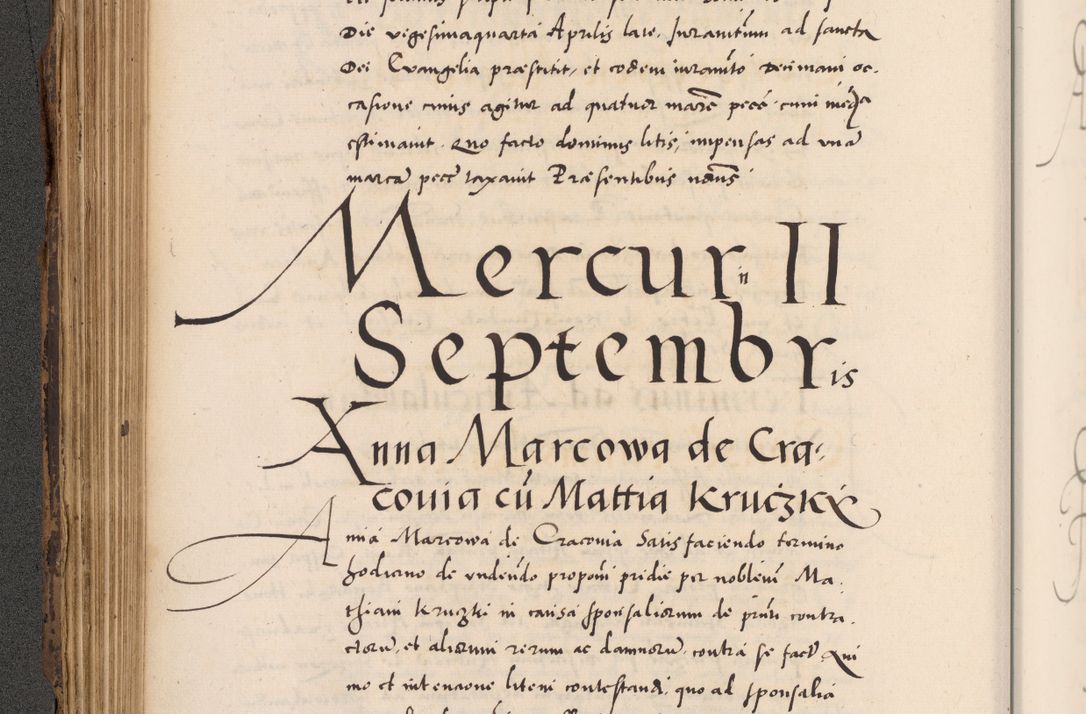 Die vegesimaquarta Aprilis late, Iuramentum ad sancta
Dei Evangelia præstitit, et eodem iuramento decimam oc-
casione cuius agitur ad quatuor marc pecc cum media
estimavit. Quo facto dominus litis, impensas ad una
marca pecc taxavit Præsentibus
Mercurii II
Septembris
Anna Marcowa de Cra-
covia cu Mattia Kruczki
Anna Marcowa de Cracovia Satisfaciendo termino
hodierno de videndo proponi pridie per nobilem Ma-
thiam Kruczki in causa sponsaliorum de contra-
ctoru, et aliorum rerum ac damnoru, contra se fact Qui
mo et intencione litem contestandi, quo ad sponsalia